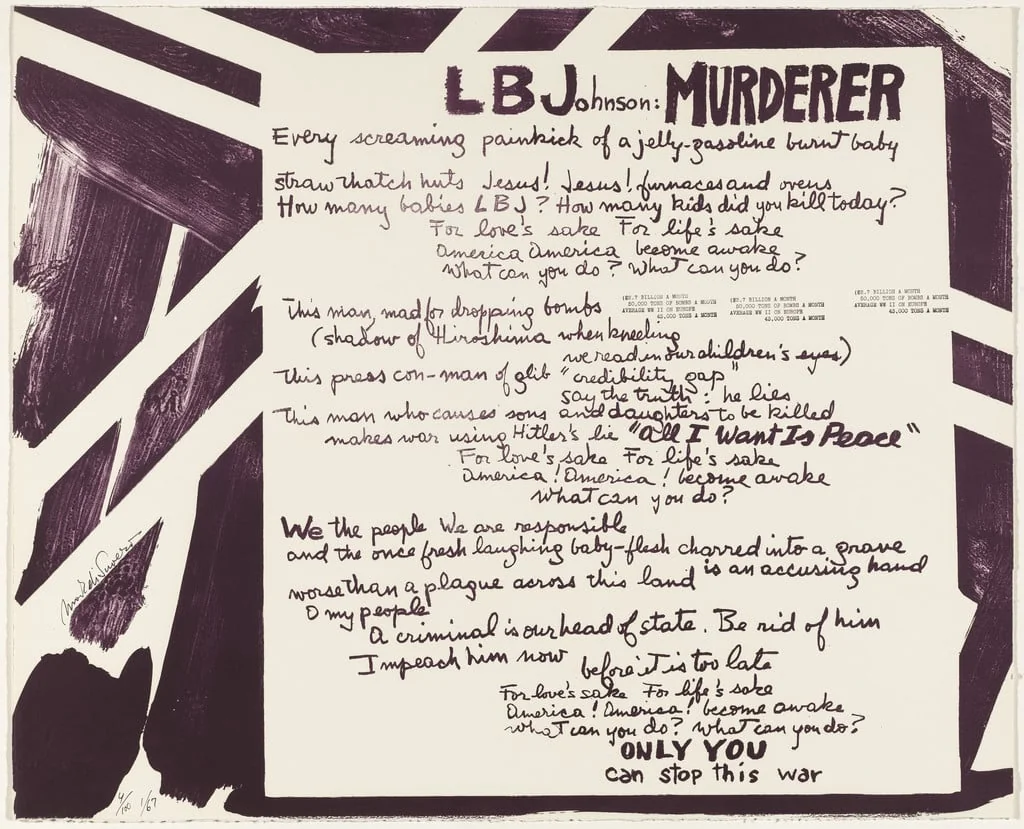 LBJohnson: MURDERER
Every screaming painkick of a jelly-gasoline burnt baby
straw thatch huts Jesus! Jesus! furnaces and ovens
How many babies LBJ? How many kids did you kill today?
For love's sake For life's sake
America America become awake
What can you do? What can you do?
This man, mad for dropping bombs
($2.7 BILLION A MONTH
50,000 TONS OF BOMBS A MONTH
AVERAGE WW II ON EUROPE
43,000 TONS A MONTH
($2.7 BILLION A MONTH
50,000 TONS OF BOMBS A MONTH
AVERAGE WW II ON EUROPE
43,000 TONS A MONTH
($2.7 BILLION A MONTH
50,000 TONS OF BOMBS A MONTH
AVERAGE WW II ON EUROPE
43,000 TONS A MONTH
(shadow of Hiroshima when kneeling
we read in our children's eyes)
This press con-man of glib "credibility gap"
say the truth: he lies
This man who causes sons and daughters to be killed
makes war using Hitler's lie "All I Want Is Peace"
For love's sake For life's sake
America! America! become awake
What can you do?
We the people We are responsible
and the once fresh laughing baby-flesh charred into a grave
worse than a plague across this land is an accusing hand
O my people
A criminal is our head of state. Be rid of him
Impeach him now before it is too late
For love's sake For life's sake
America! America! become awake
What can you do? What can you do?
ONLY YOU
can stop this war
Mark di Suvero
4/100 1/67